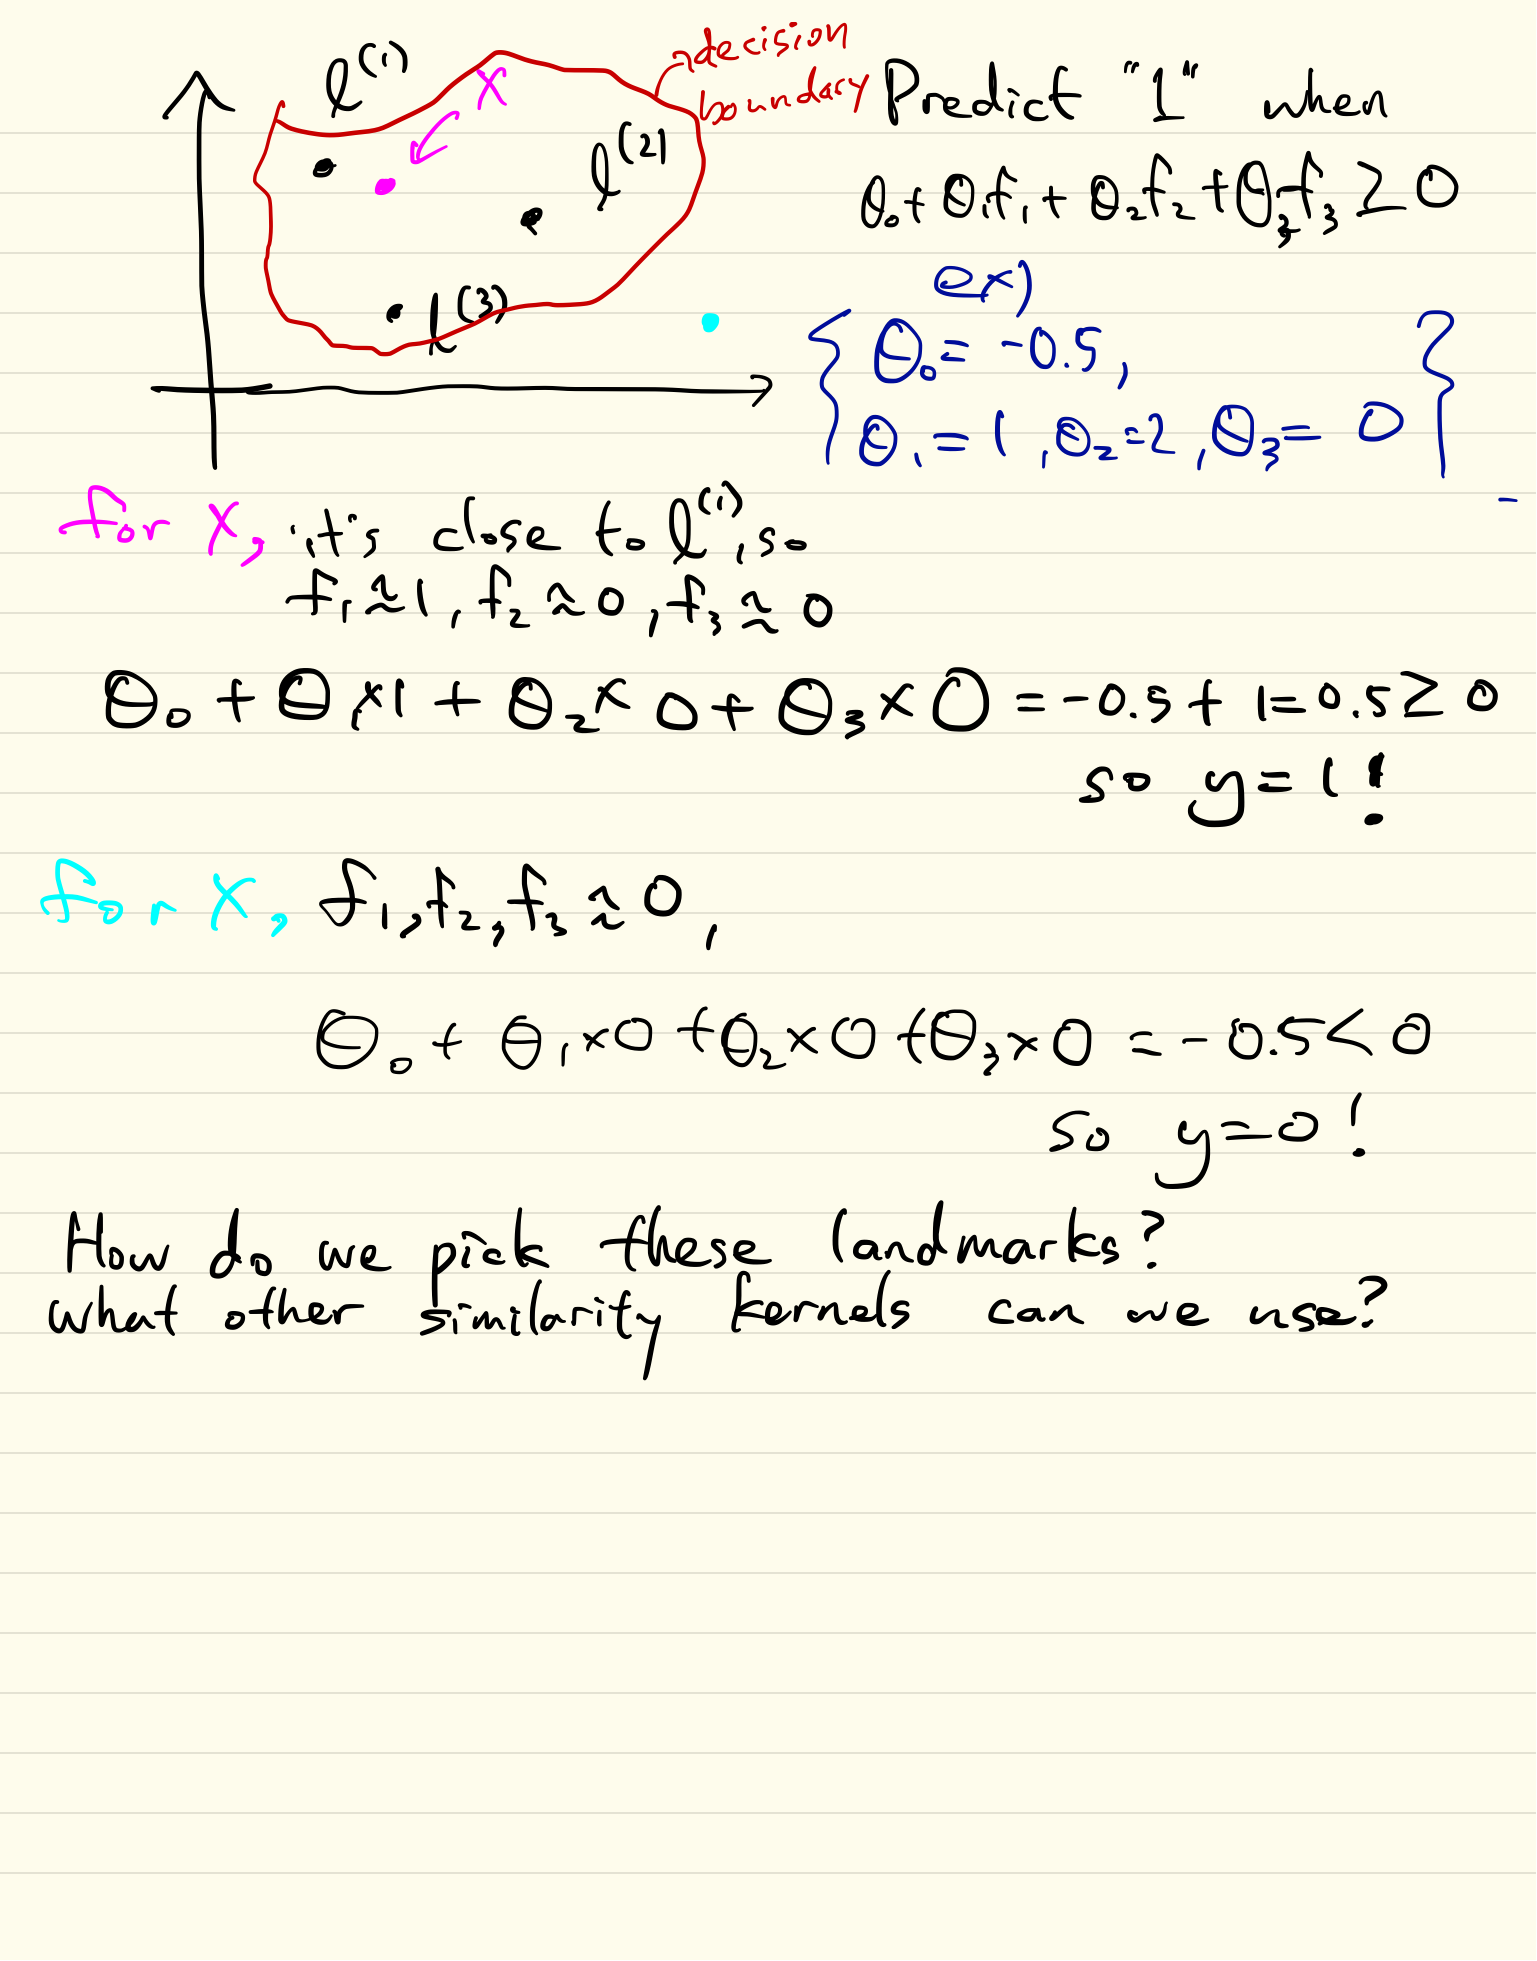 l⁽¹⁾
x
decision
boundary
l⁽²⁾
l⁽³⁾
Predict "1" when
θ₀ + θ₁f₁ + θ₂f₂ + θ₃f₃ ≥ 0
ex)
{ θ₀ = -0.5,
θ₁ = 1, θ₂ = 2, θ₃ = 0 }
for x, it's close to l⁽¹⁾, so
f₁ ≈ 1, f₂ ≈ 0, f₃ ≈ 0
θ₀ + θ₁×1 + θ₂×0 + θ₃×0 = -0.5 + 1 = 0.5 ≥ 0
so y = 1!
for x, f₁, f₂, f₃ ≈ 0,
θ₀ + θ₁×0 + θ₂×0 + θ₃×0 = -0.5 < 0
so y = 0!
How do we pick these landmarks?
what other similarity kernels can we use?